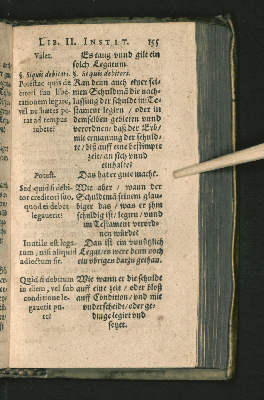 LIB. II. INSTIT. 155
Valet. Es taug vnnd gilt ein
solch Legatum.
§. Si quis debitori. §. Si quis debitori.
Potestac quis de- Kan denn auch einer sei-
bitori suo libe- men Schuldmã die nach-
rationem legare, lassung der schulde im Te-
vel ne hæres pe- stament legirn / oder in
tat ad tempus demselben gebieten vnnd
iubere? verordnen / daß der Erb /
mit ermanung der schuld-
t / biß auff eine bestimpte
zeit / an sich vnnd
einhalte?
Potest. Das hat er gute macht.
Sed quid si debi- Wie aber / wann der
tor creditori suo, Schuldmã seinem glau-
quod ei debet biger das / was er jhm
legauerit? schuldig ist / legirn / vnnd
im Testament verord-
nen würde?
Inutile est lega- Das ist ein vnnützlich
tum, nisi aliquid Legat / es were denn noch
adiectum sit. ein vbriges darzu gethan.
Quid si debitum Wie wann er die schulde
in diem, vel sub auff eine zeit / oder bloß
conditione le- auff Condition / vnd mit
gauerit pu- vnderscheidt / oder ge-
re? dinge legirt vnd
seyet.